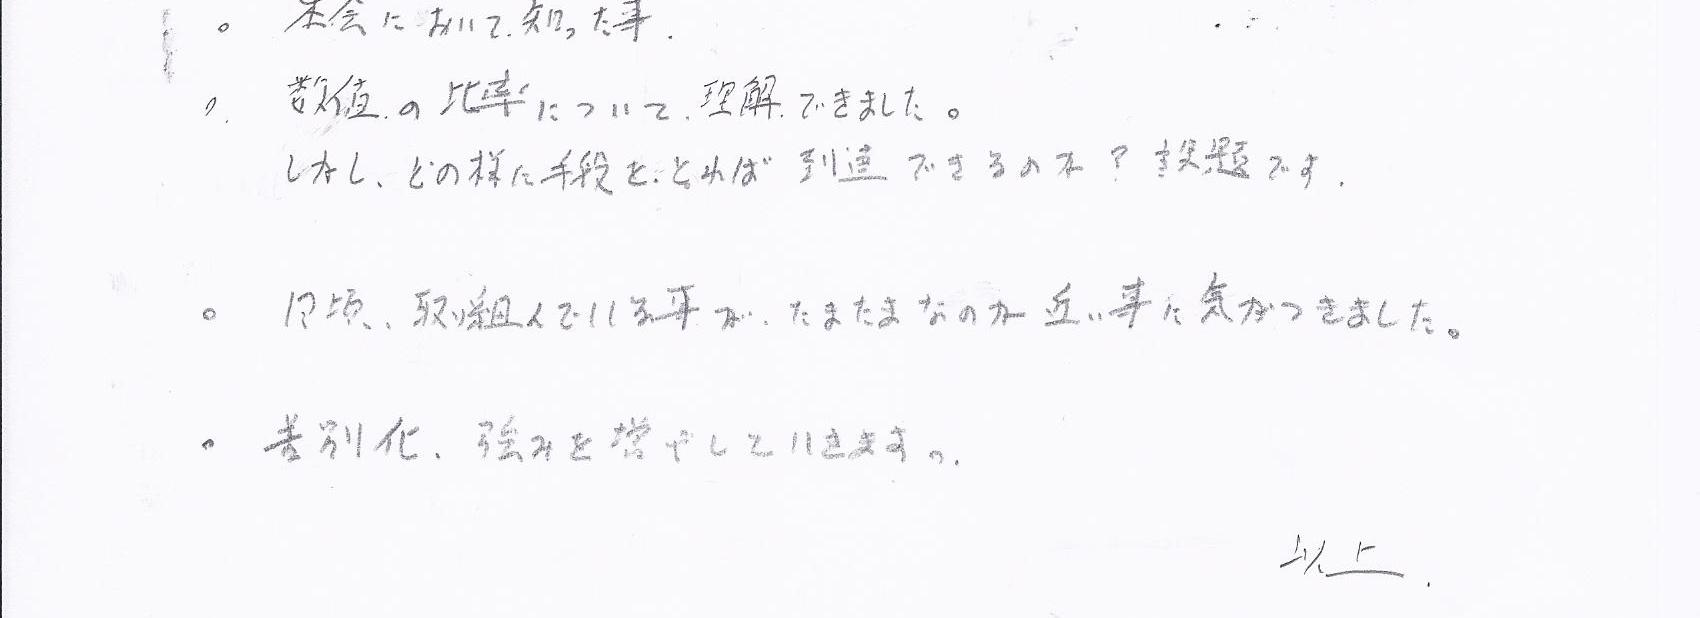 。 本会において、知った事.
。 数値の比率について、理解できました。
しかし、どの様に手段をとれば到達できるのか？課題です.
。 日頃、取り組んでいる事が、たまたまなのか近い事に気がつきました。
・ 差別化、強みを増やしていきます。
以上.